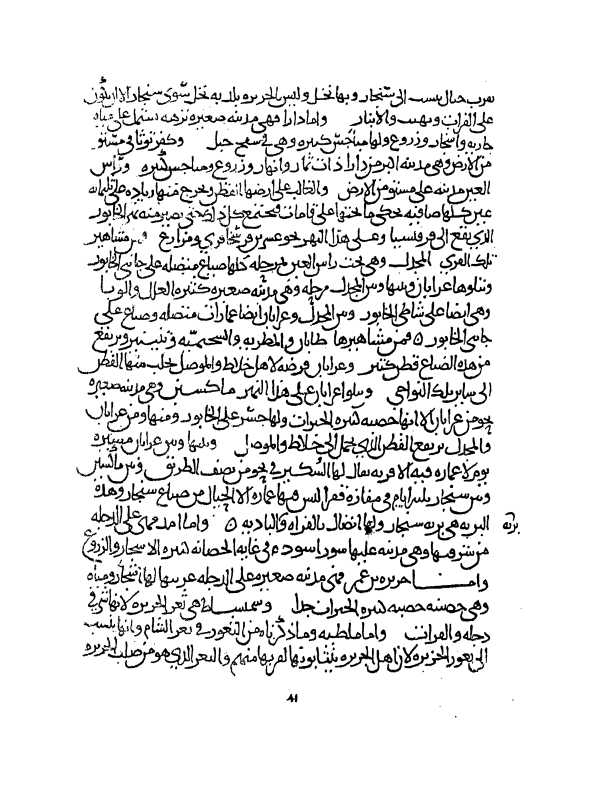 بقرب جبال تنسب الى سنجار وبها نخل وليس بالجزيره بلد به نخل سوى سنجار الا ان يكون
على الفرات وبهيت والانبار واما دارا فهى مدينه صغيره نزهه تشتمل على مياه
جاريه واشجار وزروع ولها مباخس كثيره وهى فى سفح جبل وكفرتوثا فى مستو
من الارض وهى مدينه اكبر من دارا ذات ثمار وانهار وزروع ومباخس كثيره وراس
العين مدينه على مستو من الارض والغالب على ارضها القطن ويخرج منها زياده على ثلثمائه
عين كلها صافيه تحكى ما تحتها على قامات ويجتمع كل ذلك حتى يصير منه نهر الخابور
الذى يقع الى قرقيسيا وعلى هذا النهر نحو عشرين فرسخا قرى ومزارع ومن مشاهير
تلك القرى المجدل وهى تحت راس العين بمرحله كلها ضياع متصله على جانبى الخابور
وتتلوها عرابان وبينها وبين المجدل مرحله وهى مدينه صغيره كثيره الغلال والوبا
وهى ايضا على شاطى الخابور وبين المجدل وعرابان ايضا عمارات متصله وضياع على
جانبى الخابور فمن مشاهيرها طابان والمطريه و وتنينير ويرتفع
من هذه الضياع قطن كثير وعرابان فرضه لاهل خلاط والموصل جلب منها القطن
الى سائر تلك النواحى ويتلو عرابان على هذا النهر ماكسين وهى مدينه صغيره
نحو من عرابان الا انها خصبه كثيره الخيرات ولها جسر على الخابور ومنها ومن عرابان
والمجدل يرتفع القطن الذى يحمل الى خلاط والموصل وبينها وبين عرابان مسيره
يوم لا عماره فيه الا قريه يقال لها السكير فى نحو من نصف الطريق وبين ماكسين
وبين سنجار ثلثه ايام فى مفازه قفر ليس فيها عماره الا الجبال من ضياع سنجار وهذه
البريه هى بريه سنجار ولها اتصال بالفراه والباديه واما امد فهى على الدجله
من شرقيها وهى مدينه عليها سور اسود فى غايه الحصانه كثيره الاشجار والزروع
واما جزيره بن عمر فهى مدينه صغيره على الدجله غربيها لها اشجار ومياه
وهى حصينه خصبه كثيره الخيرات جدا وسميساط هى ثغر الجزيره لانها فى
دجله والفرات واما ملطيه وما ذكرناه من الثغور فى ثغر الشام وانها ينسب
الى ثغور الجزيره لان اهل الجزيره بها لقربها منهم والثغر الذى هو من صلب الجزيره
بريه
٤١